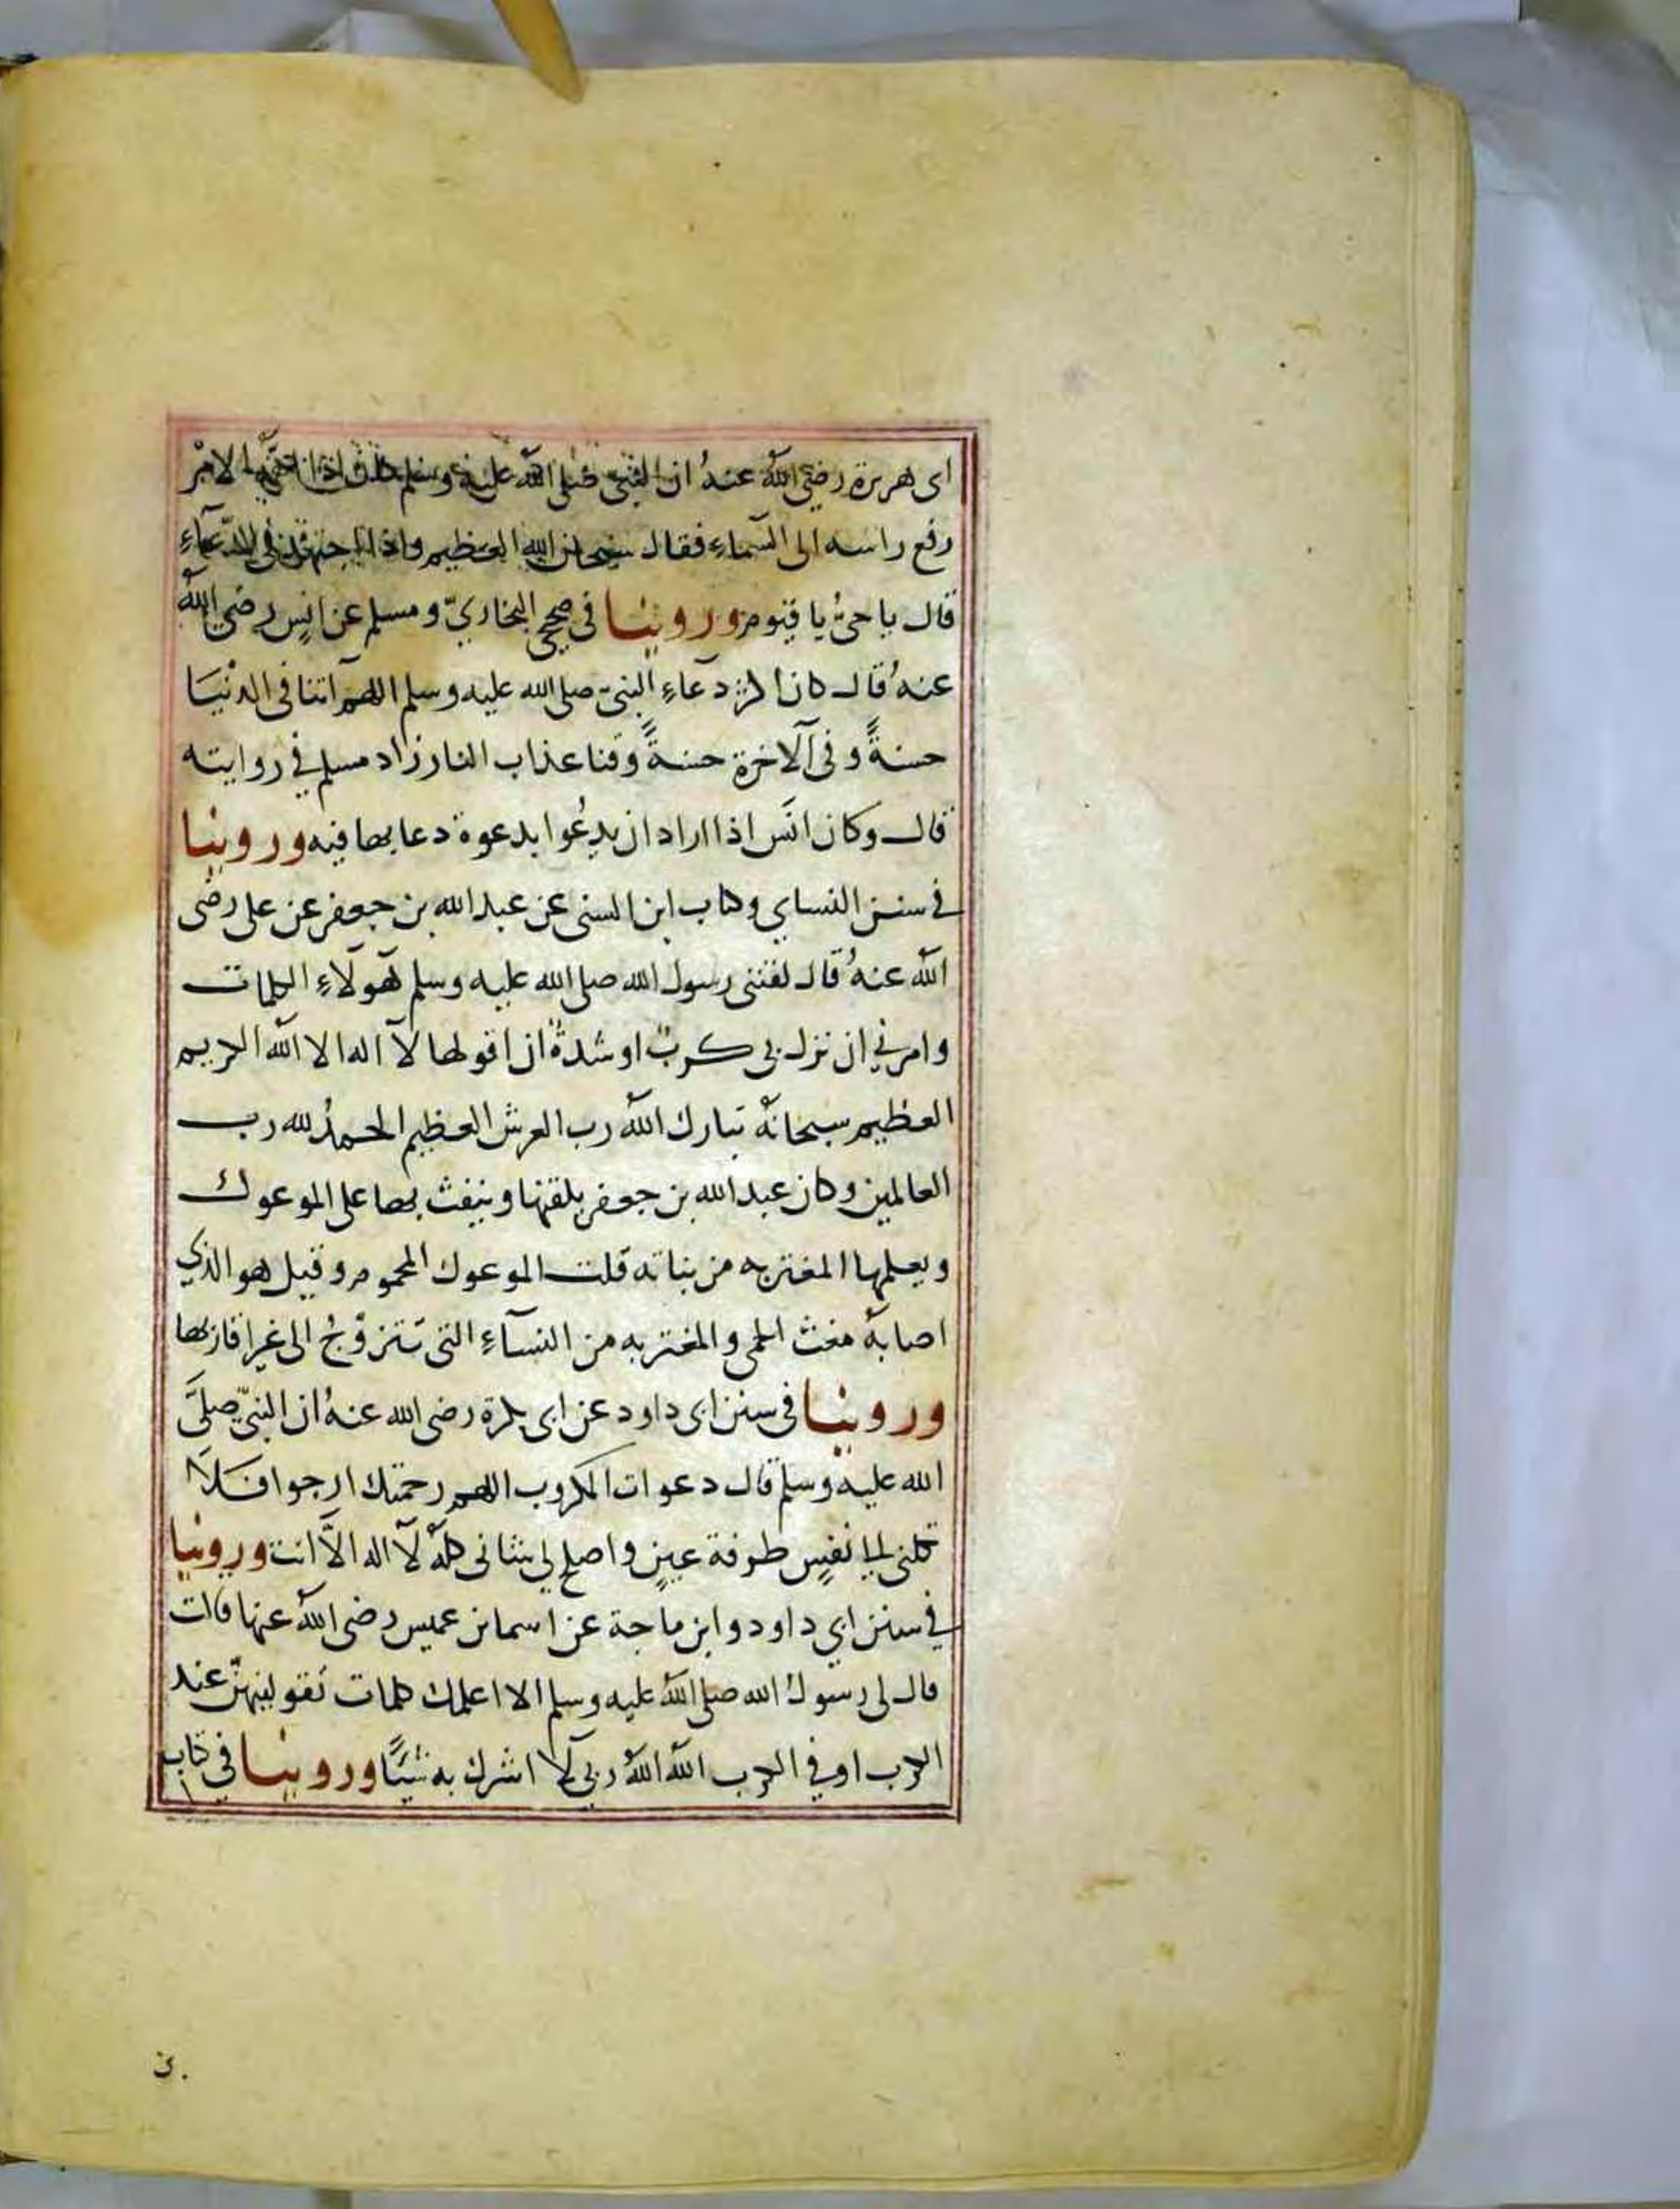 ابى هريرة رضي الله عنه ان النبي صلى الله عليه وسلم كان اذا اهمه الامر
رفع راسه الى السماء فقال سبحان الله العظيم واذا اجتهد في الدعاء
قال يا حي يا قيوم وروينا في صحيح البخاري ومسلم عن انس رضي الله
عنه قال كان اكثر دعاء النبي صلى الله عليه وسلم اللهم آتنا في الدنيا
حسنة وفي الآخرة حسنة وقنا عذاب النار زاد مسلم في روايته
قال وكان انس اذا اراد ان يدعوا بدعوة دعا بها فيه وروينا
في سنن النساي وكتاب ابن السنى عن عبد الله بن جعفر عن على رضى
الله عنه قال لقننى رسول الله صلى الله عليه وسلم هولاء الكلمات
وامرني ان نزل بي كرب او شدة ان اقولها لا اله الا الله الكريم
العظيم سبحانه تبارك الله رب العرش العظيم الحمد لله رب
العالمين وكان عبد الله بن جعفر يلقنها وينفث بها على الموعوك
ويعلمها المغتربه من بناته قلت الموعوك المحموم وقيل هو الذي
اصابه مغث الحمى والمغتربه من النساء التى تتزوج الى غير اقاربها
وروينا في سنن ابى داود عن ابى بكرة رضى الله عنه ان النبي صلى
الله عليه وسلم قال دعوات المكروب اللهم رحمتك ارجوا فلا
تكلنى الى نفس طرفة عين واصلح لي شانى كله لا اله الا انت وروينا
في سنن ابي داود وابن ماجة عن اسما بن عميس رضى الله عنها قالت
قال لى رسول الله صلى الله عليه وسلم الا اعلمك كلمات تقولينهن عند
الكرب او في الكرب الله الله ربي لا اشرك به شيئا وروينا في كتاب